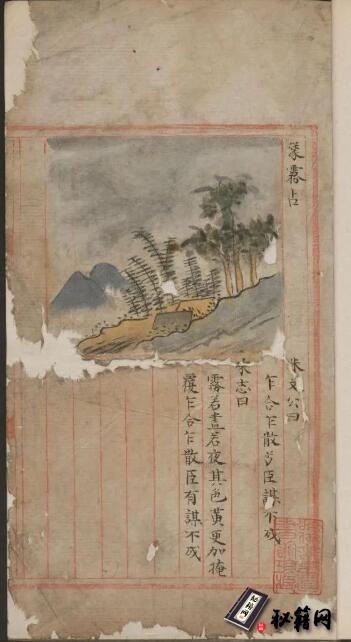 蒙霧占
朱文公曰
乍合乍散兮臣謀不成
宋志曰
霧若晝若夜其色黃更加掩
覆乍合乍散臣有謀不成
秘籍网
秘籍网